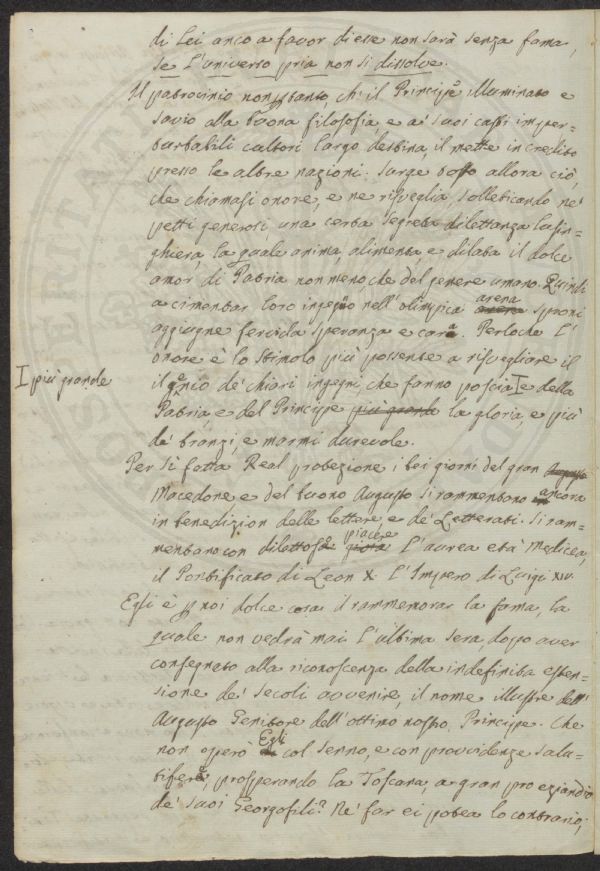 di Lei anco a favor di esse non sarà senza fama,
se L'universo pria non si dissolve.
Il patrocinio non p tanto, ch' il Principe illuminato e
savio alla buona filosofia, e a' suoi cassi imper-
turbabili cultori largo destina, il mette in credito
presso le altre nazioni. Surge tosto allora ciò,
che chiamasi onore, e ne risveglia, solleticando ne'
petti generosi una certa segreta dilettanza lusin-
ghiera, la quale anima, alimenta e dilata il dolce
amor di Patria non meno che del genere umano. Quindi
a cimentar loro ingegno nell' olimpica arena sproni
aggiugne fervida speranza e cara. Perloche L'
onore è lo stimolo più possente a risvegliare il
il genio de' chiari ingegni, che fanno poscia I e della
I più grande
Patria, e del Principe più grande la gloria, e più
de' bronzi, e marmi durevole.
Per sì fatta Real protezione i bei giorni del gran Augusto
Macedone, e del buono Augusto si rammentano ancora
in benedizion delle lettere, e de' Letterati. Si ram-
mentano con dilettoso piacere gioia L'aurea età Medicea,
il Pontificato di Leon X. L'Impero di Luigi XIV.
Egli è p noi dolce cosa il rammemorar la fama, la
quale non vedrà mai L'ultima sera, dopo aver
consegnato alla riconoscenza della indefinita esten-
sione de' secoli avvenire, il nome illustre dell'
Augusto Genitore dell' ottimo nostro Principe. Che
non operò Egli col senno, e con provvidenze salu-
tifere, prosperando la Toscana, a gran pro eziandio
de' suoi Georgofili? Ne' far ei potea lo contrario;